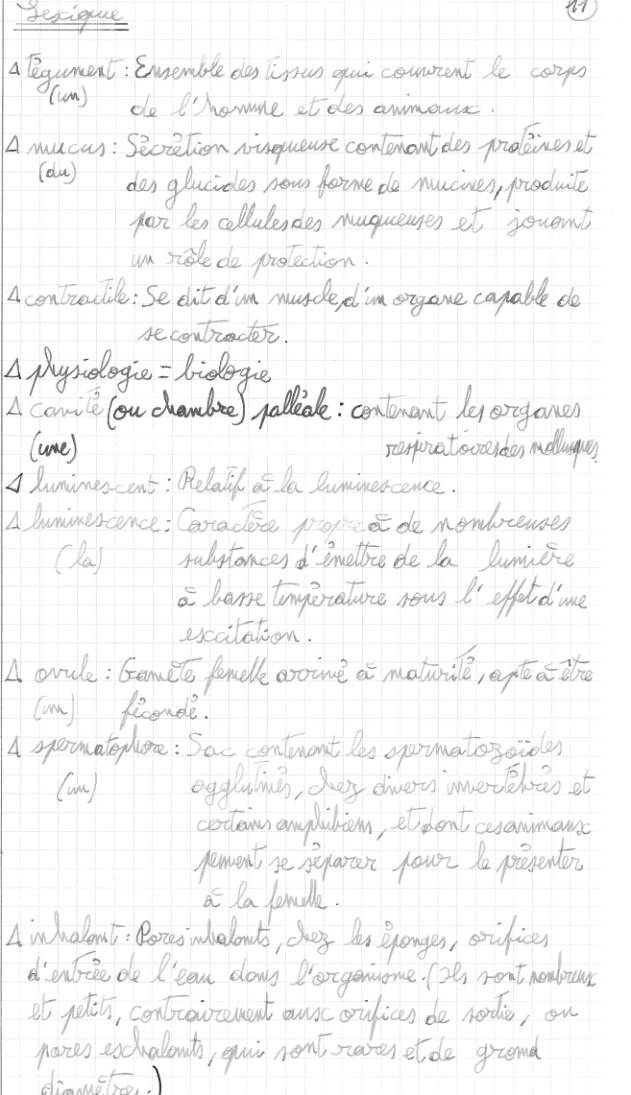 Lexique
11
Δ Tégument : Ensemble des tissus qui couvrent le corps
(un) de l'homme et des animaux.
Δ mucus : Sécrétion visqueuse contenant des protéines et
(du) des glucides sous forme de mucines, produite
par les cellules des muqueuses et jouant
un rôle de protection.
Δ contractile : Se dit d'un muscle, d'un organe capable de
se contracter.
Δ physiologie = biologie
Δ cavité (ou chambre) palléale : contenant les organes
(une) respiratoires des mollusques
Δ luminescent : Relatif à la luminescence.
Δ luminescence : Caractère propre à de nombreuses
(la) substances d'émettre de la lumière
à basse température sous l'effet d'une
excitation.
Δ ovule : Gamète femelle arrivé à maturité, apte à être
(un) fécondé.
Δ spermatophore : Sac contenant les spermatozoïdes
(un) agglutinés, chez divers invertébrés et
certains amphibiens, et dont ces animaux
peuvent se séparer pour le présenter
à la femelle.
Δ inhalant : Pores inhalants, chez les éponges, orifices
d'entrée de l'eau dans l'organisme. (Ils sont nombreux
et petits, contrairement aux orifices de sortie, ou
pores exhalants, qui sont rares et de grand
diamètre.)